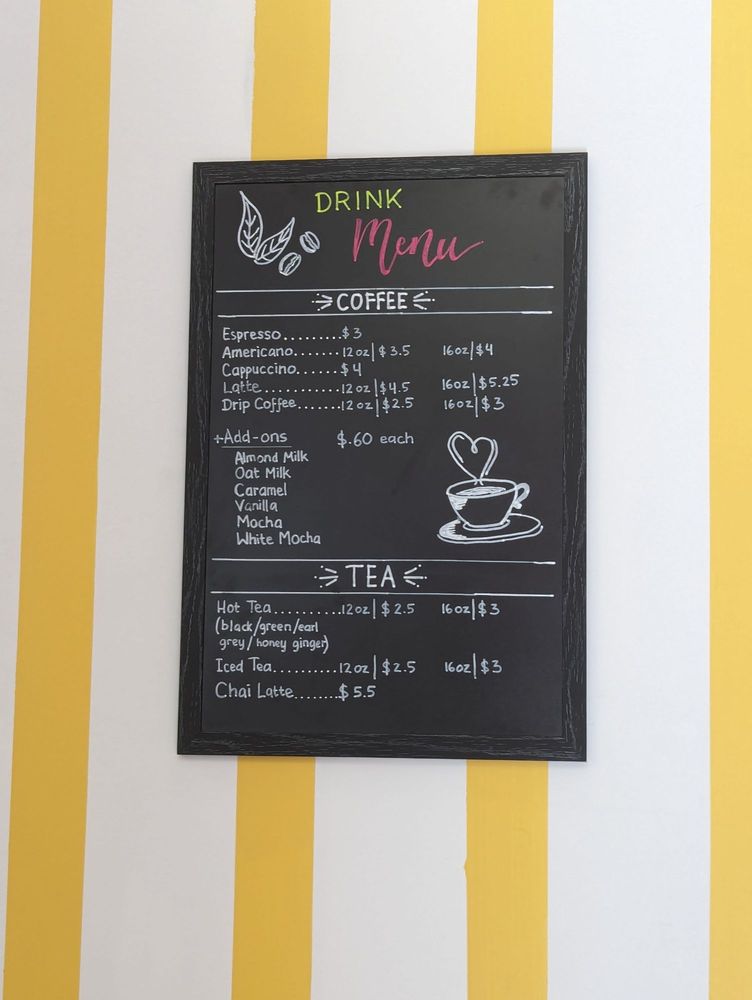 DRINK
Menu
COFFEE
Espresso.........$3
Americano.......12oz|$3.5 16oz|$4
Cappuccino......$4
Latte............12oz|$4.5 16oz|$5.25
Drip Coffee.......12oz|$2.5 16oz|$3
+Add-ons $.60 each
Almond Milk
Oat Milk
Caramel
Vanilla
Mocha
White Mocha
TEA
Hot Tea..........12oz|$2.5 16oz|$3
(black/green/earl
grey/honey ginger)
Iced Tea..........12oz|$2.5 16oz|$3
Chai Latte.......$5.5